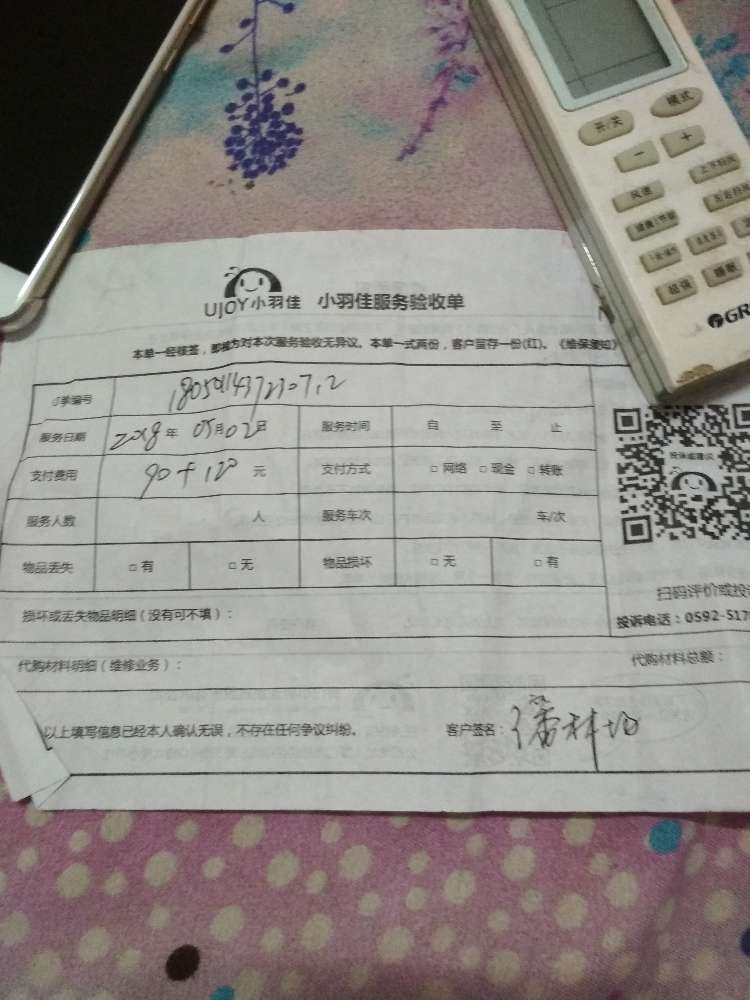 开/关
模式
－
＋
风速
上下扫风
左右扫风
健康|节能
睡眠
GR
UJOY小羽佳 小羽佳服务验收单
本单一经核签，即视为对本次服务验收无异议。本单一式两份，客户留存一份(红)。《维保须知》
订单编号
服务日期 2018年 05月 02日 服务时间 自 至 止
支付费用 90+120 元 支付方式 □ 网络 □ 现金 □ 转账
服务人数 人 服务车次 车/次
物品丢失 □ 有 □ 无 物品损坏 □ 无 □ 有
投诉或建议
扫码评价或投诉
投诉电话：0592-517
损坏或丢失物品明细（没有可不填）：
代购材料明细（维修业务）： 代购材料总额：
以上填写信息已经本人确认无误，不存在任何争议纠纷。 客户签名：